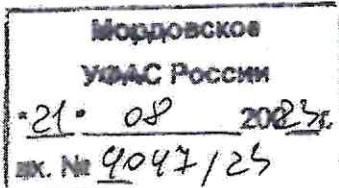 Мордовское
УФАС России
"21" 08 2023г.
вх. № 4047/23